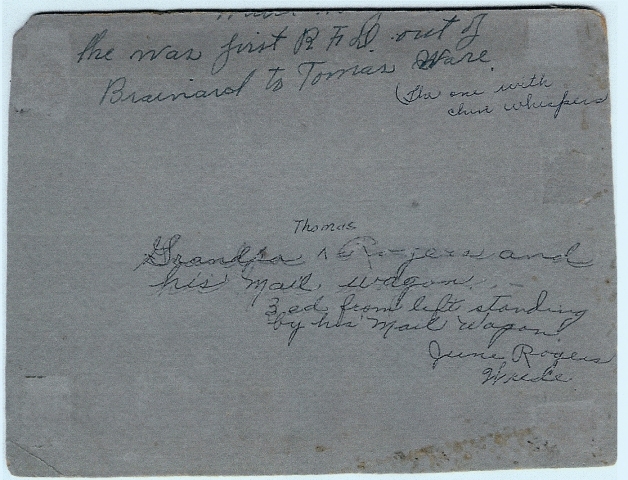 he was first R F D. out of
Brainard to Tomas Ware.
(the one with
chin whispers
Thomas
Grandpa ^ Rogers and
his mail wagon.
3ed from left standing
by his Mail Wagon.
June Rogers